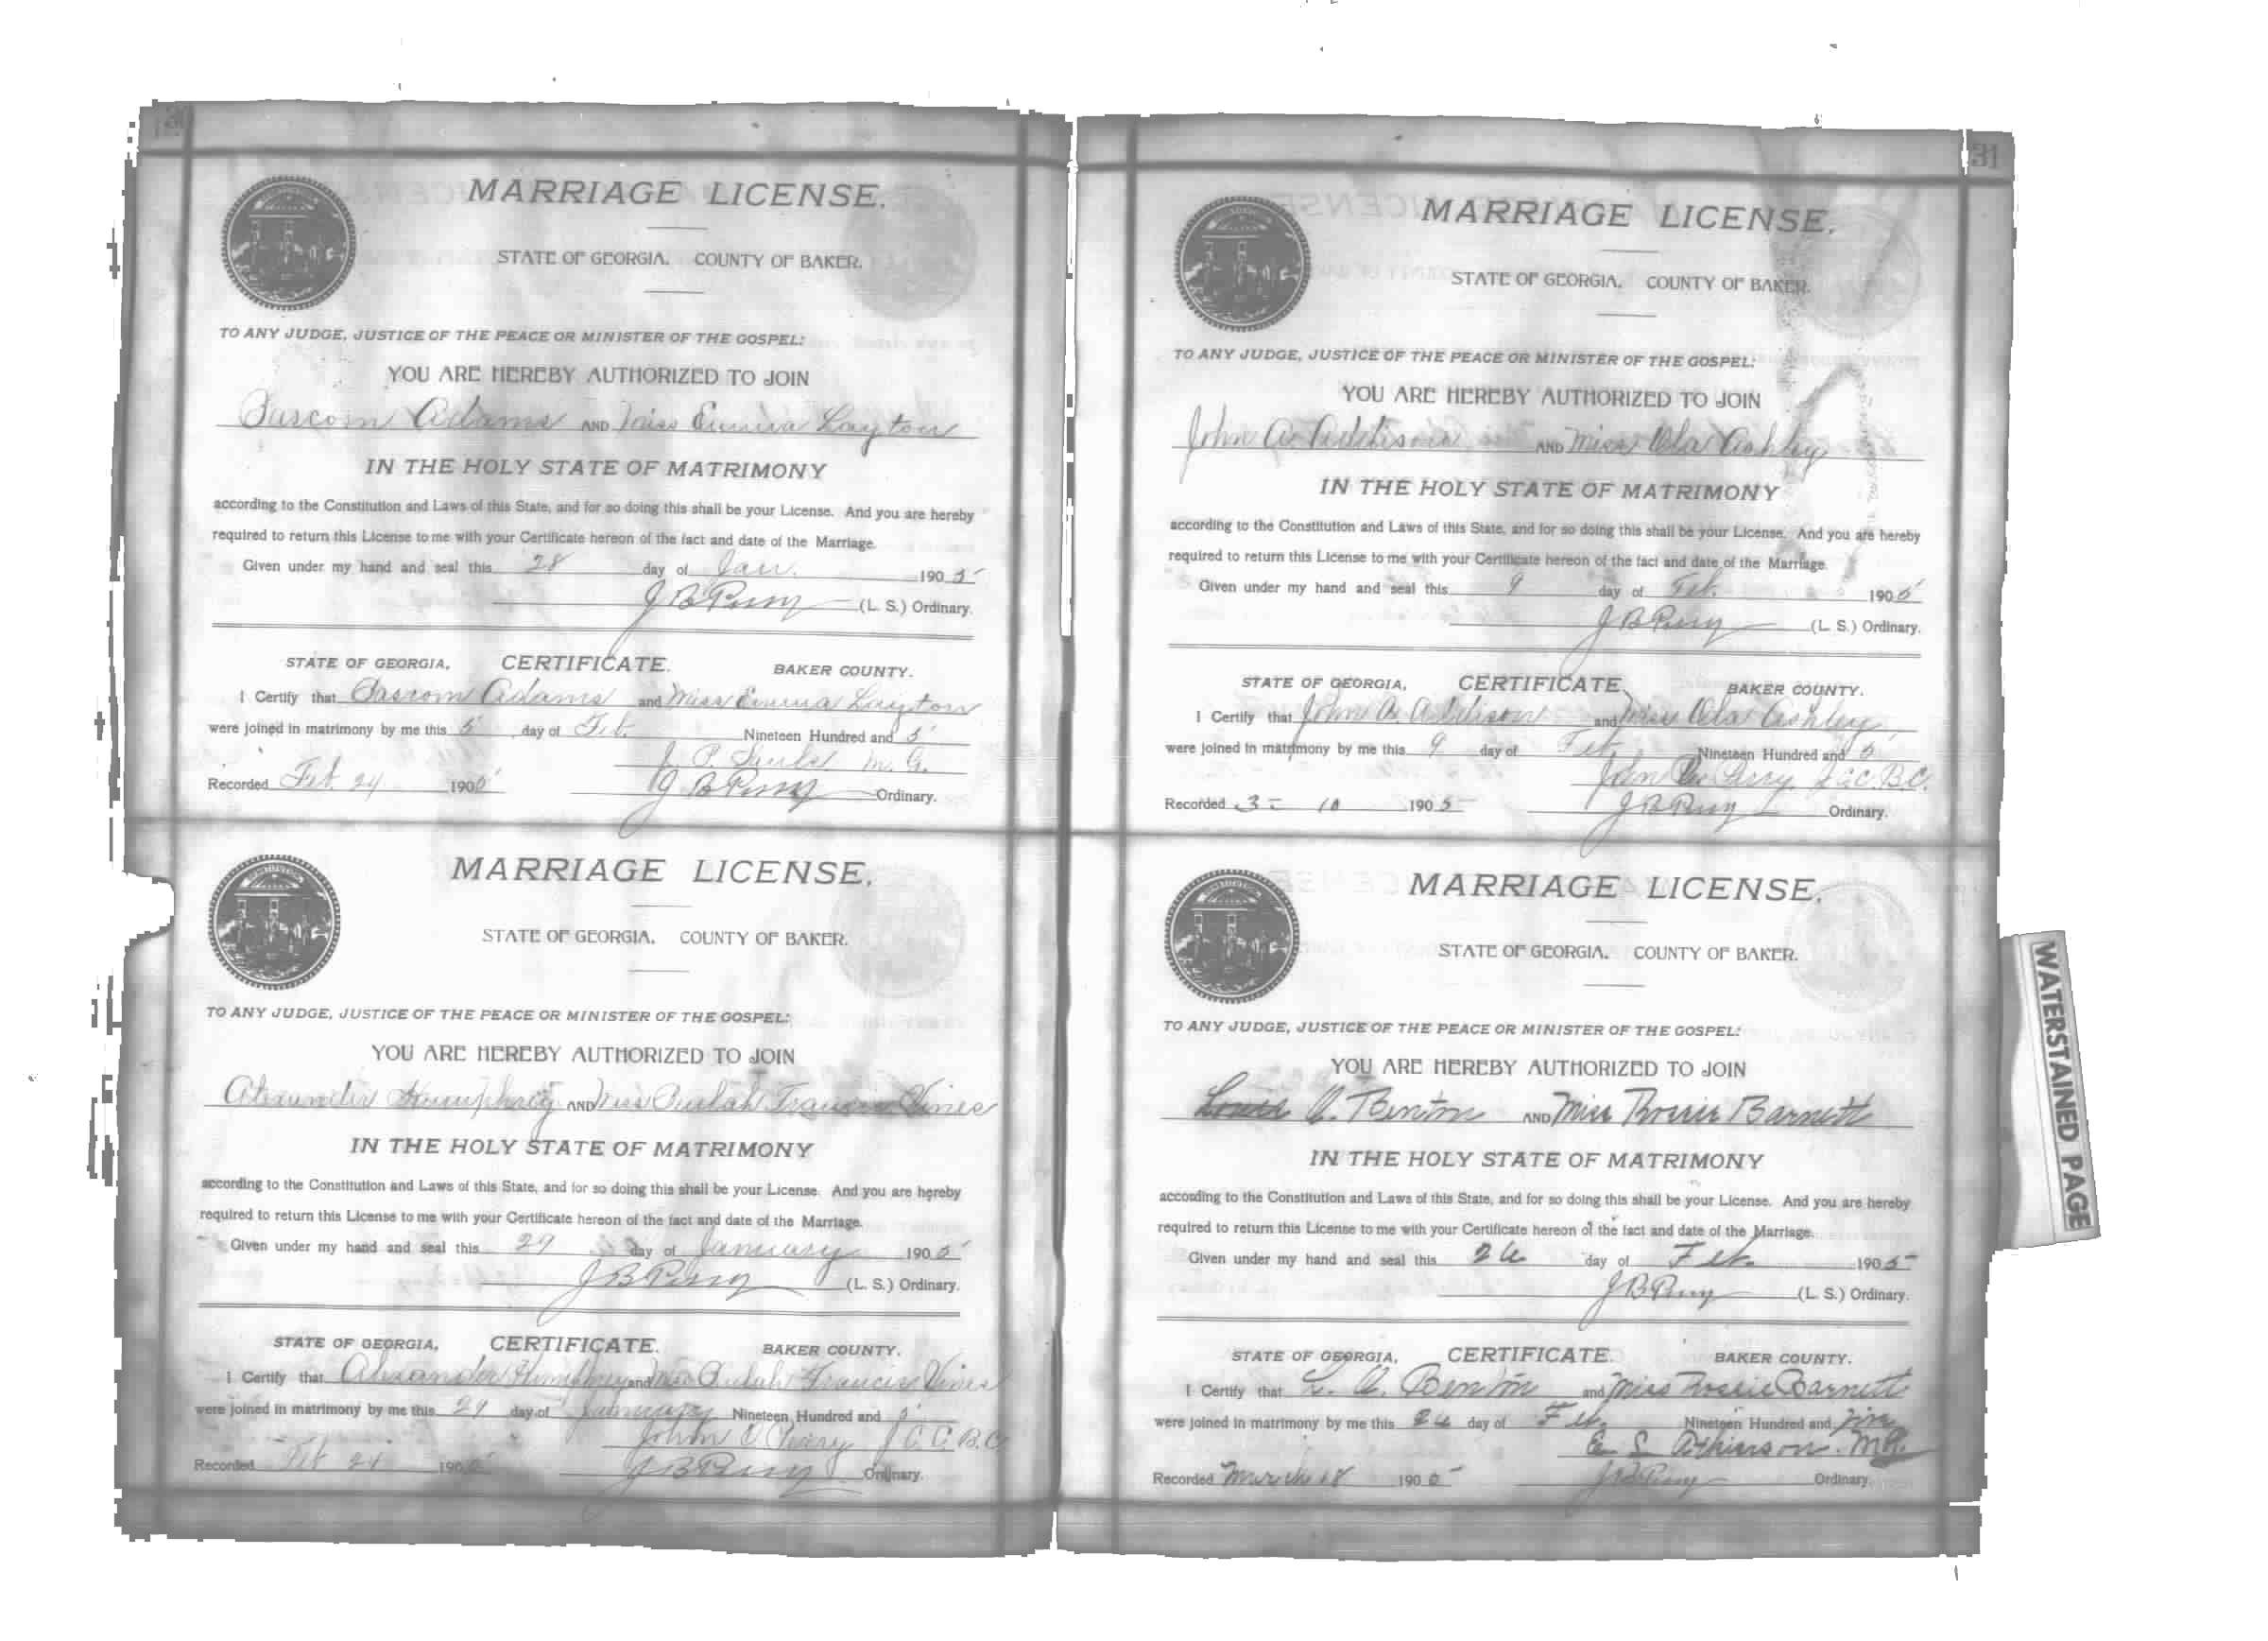 MARRIAGE LICENSE.
STATE OF GEORGIA. COUNTY OF BAKER.
TO ANY JUDGE, JUSTICE OF THE PEACE OR MINISTER OF THE GOSPEL:
YOU ARE HEREBY AUTHORIZED TO JOIN
Adams AND Miss Emma Layton
IN THE HOLY STATE OF MATRIMONY
according to the Constitution and Laws of this State, and for so doing this shall be your License. And you are hereby
required to return this License to me with your Certificate hereon of the fact and date of the Marriage.
Given under my hand and seal this 28 day of Jan. 1905
J B Perry (L. S.) Ordinary.
STATE OF GEORGIA, CERTIFICATE. BAKER COUNTY.
I Certify that Adams and Miss Emma Layton
were joined in matrimony by me this 5 day of Feb. Nineteen Hundred and 5
J. P. M. G.
Recorded Feb. 24 1905 J B Perry Ordinary.
MARRIAGE LICENSE.
STATE OF GEORGIA. COUNTY OF BAKER.
TO ANY JUDGE, JUSTICE OF THE PEACE OR MINISTER OF THE GOSPEL:
YOU ARE HEREBY AUTHORIZED TO JOIN
Alexander Humphrey AND Miss Beulah Francis Vines
IN THE HOLY STATE OF MATRIMONY
according to the Constitution and Laws of this State, and for so doing this shall be your License. And you are hereby
required to return this License to me with your Certificate hereon of the fact and date of the Marriage.
Given under my hand and seal this 29 day of January 1905
J B Perry (L. S.) Ordinary.
STATE OF GEORGIA, CERTIFICATE. BAKER COUNTY.
I Certify that Alexander Humphrey and Miss Beulah Francis Vines
were joined in matrimony by me this 29 day of January Nineteen Hundred and 5
John O Perry J C C B C
Recorded Feb 24 1905 J B Perry Ordinary.
31
MARRIAGE LICENSE.
STATE OF GEORGIA. COUNTY OF BAKER.
TO ANY JUDGE, JUSTICE OF THE PEACE OR MINISTER OF THE GOSPEL:
YOU ARE HEREBY AUTHORIZED TO JOIN
John A. Addison AND Miss Ola Ashley
IN THE HOLY STATE OF MATRIMONY
according to the Constitution and Laws of this State, and for so doing this shall be your License. And you are hereby
required to return this License to me with your Certificate hereon of the fact and date of the Marriage.
Given under my hand and seal this 9 day of Feb. 1905
J B Perry (L. S.) Ordinary.
STATE OF GEORGIA, CERTIFICATE. BAKER COUNTY.
I Certify that John A. Addison and Miss Ola Ashley
were joined in matrimony by me this 9 day of Feb. Nineteen Hundred and 5
John O. Perry J.C.C.B.C.
Recorded 3 - 10 1905 J B Perry Ordinary.
MARRIAGE LICENSE.
STATE OF GEORGIA. COUNTY OF BAKER.
TO ANY JUDGE, JUSTICE OF THE PEACE OR MINISTER OF THE GOSPEL:
YOU ARE HEREBY AUTHORIZED TO JOIN
A. Benton AND Miss Barnett
IN THE HOLY STATE OF MATRIMONY
according to the Constitution and Laws of this State, and for so doing this shall be your License. And you are hereby
required to return this License to me with your Certificate hereon of the fact and date of the Marriage.
Given under my hand and seal this 26 day of Feb. 1905
J B Perry (L. S.) Ordinary.
STATE OF GEORGIA, CERTIFICATE. BAKER COUNTY.
I Certify that L. A. Benton and Miss Barnett
were joined in matrimony by me this 26 day of Feb. Nineteen Hundred and five
E S Atkinson. M.G.
Recorded March 18 1905 J B Perry Ordinary
WATERSTAINED PAGE